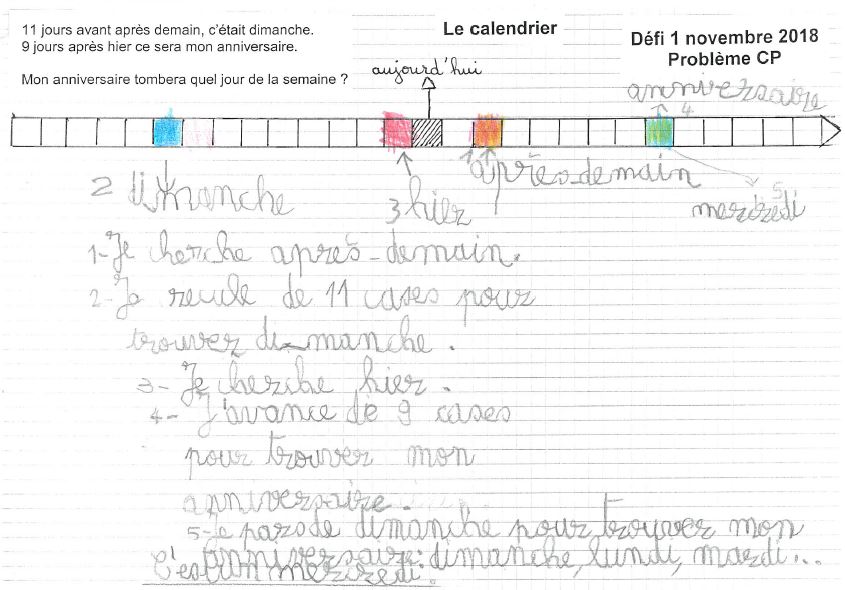 11 jours avant après demain, c'était dimanche.
9 jours après hier ce sera mon anniversaire.
Mon anniversaire tombera quel jour de la semaine ?
Le calendrier
Défi 1 novembre 2018
Problème CP
aujourd'hui
anniversaire
4
2 dimanche
3 hier
1
après-demain
5
mercredi
1- Je cherche après-demain.
2- Je recule de 11 cases pour
trouver di-manche.
3- Je cherche hier.
4- J'avance de 9 cases
pour trouver mon
anniversaire.
5- Je pars de dimanche pour trouver mon
anniversaire : dimanche, lundi, mardi...
C'est un mercredi.